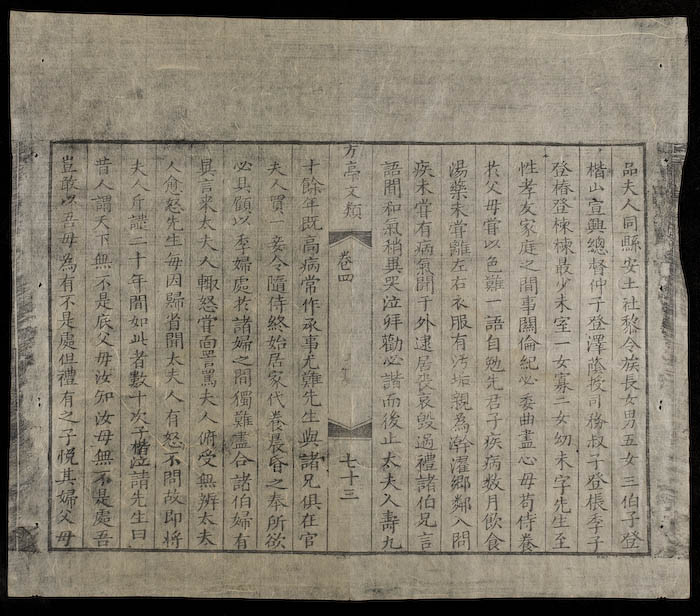 品夫人同縣安土社黎令族長女男五女三伯子登
楷山宣興總督仲子登澤蔭授司務叔子登棖季子
登椿登棟棟最少未室一女寡二女幼未字先生至
性孝友家庭之間事關倫紀必委曲盡心每苟侍養
於父母嘗以色難一語自勉先君子疾病数月飲食
湯藥未嘗離左右衣服有污垢親為澣濯鄉鄰入問
疾未嘗有病氣聞于外逮居喪哀毀過禮諸伯兄言
語間和氣稍異哭泣拜勸必諧而後止太夫人壽九
方亭文類
卷四
七十三
十餘年既高病常作承事尤難先生與諸兄俱在官
夫人買一妾令隨侍終始居家代養晨昏之奉所欲
必具顧以季婦處於諸婦之間獨難盡合諸伯婦有
異言來太夫人輒怒嘗面詈罵夫人俯受無辨太夫
人愈怒先生每因歸省聞太夫人有怒不問故即將
夫人斥譴二十年間如此者數十次子楷泣請先生曰
昔人謂天下無不是底父母汝知汝母無不是處吾
豈敢以吾母為有不是處但禮有之子悅其婦父母